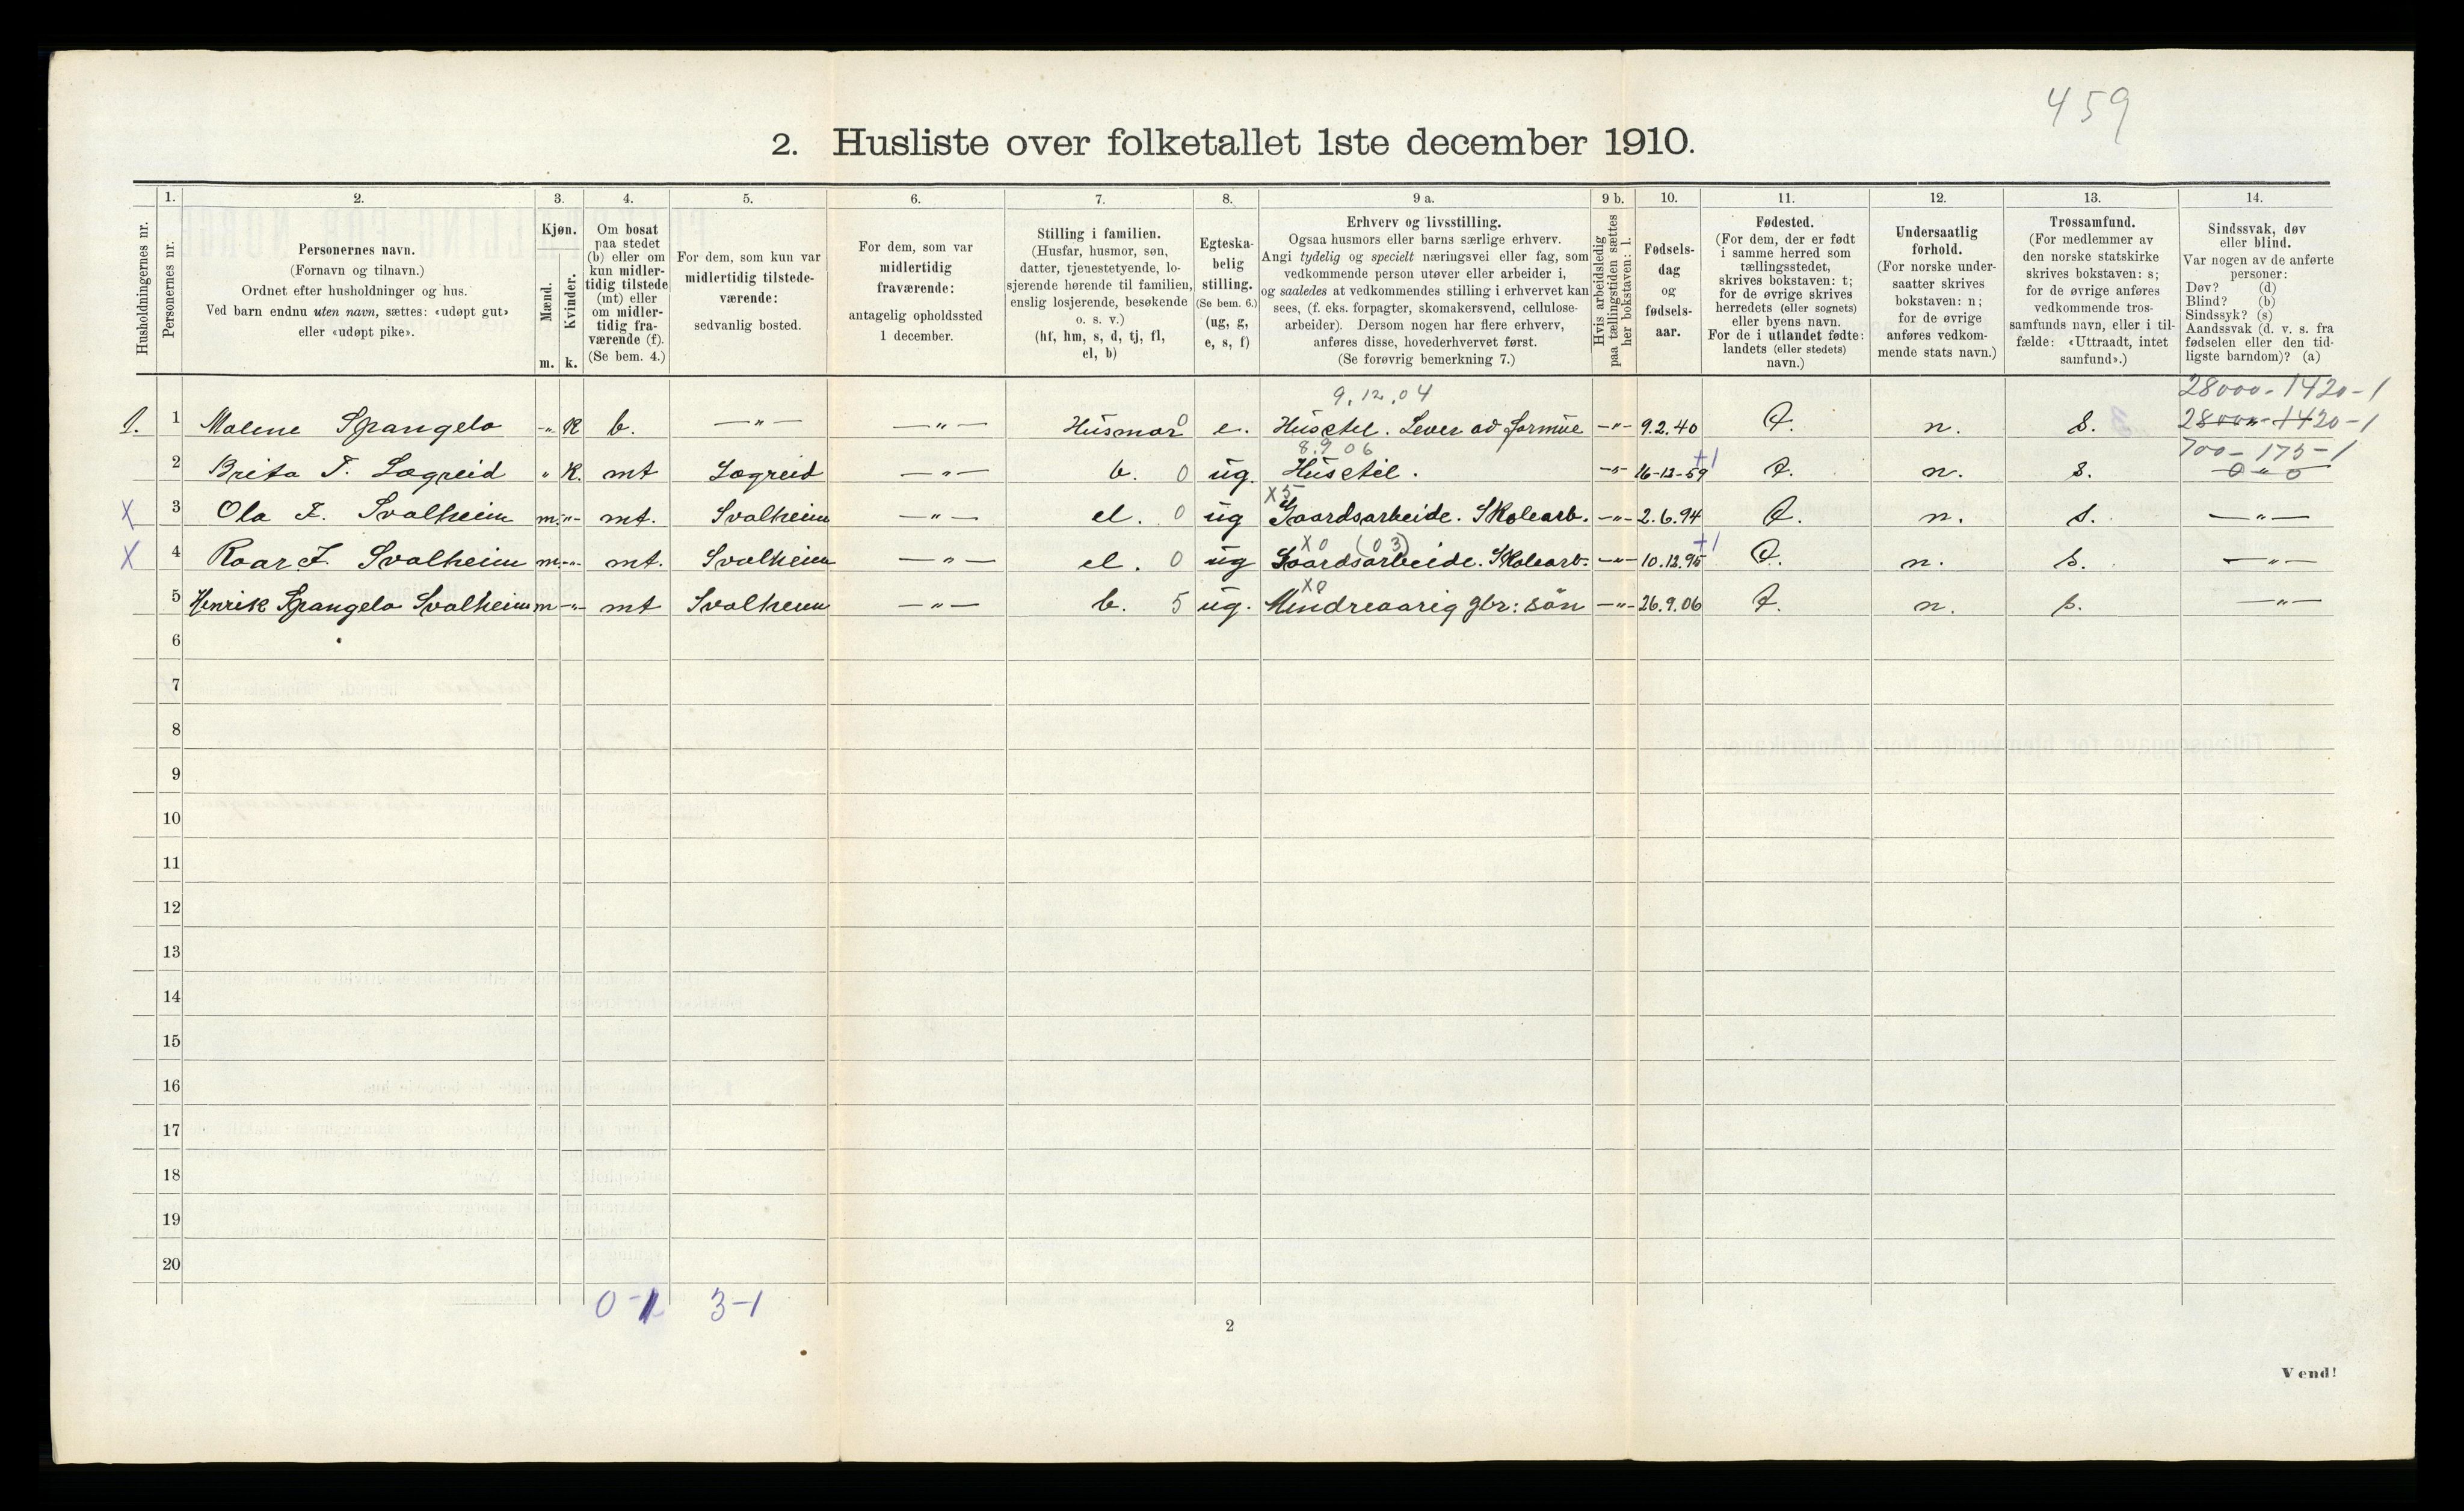 459
2. Husliste over folketallet 1ste december 1910.
Husholdningernes nr.
1.
Personernes nr.
2.
Personernes navn.
(Fornavn og tilnavn.)
Ordnet efter husholdninger og hus.
Ved barn endnu uten navn, sættes: «udøpt gut»
eller «udøpt pike».
3.
Kjøn.
Mænd.
Kvinder.
m. k.
4.
Om bosat
paa stedet
(b) eller om
kun midler-
tidig tilstede
(mt) eller
om midler-
tidig fra-
værende (f).
(Se bem. 4.)
5.
For dem, som kun var
midlertidig tilstede-
værende:
sedvanlig bosted.
6.
For dem, som var
midlertidig
fraværende:
antagelig opholdssted
1 december.
7.
Stilling i familien.
(Husfar, husmor, søn,
datter, tjenestetyende, lo-
sjerende hørende til familien,
enslig losjerende, besøkende
o. s. v.)
(hf, hm, s, d, tj, fl,
el, b)
8.
Egteska-
belig
stilling.
(Se bem. 6.)
(ug, g,
e, s, f)
9 a.
Erhverv og livsstilling.
Ogsaa husmors eller barns særlige erhverv.
Angi tydelig og specielt næringsvei eller fag, som
vedkommende person utøver eller arbeider i,
og saaledes at vedkommendes stilling i erhvervet kan
sees, (f. eks. forpagter, skomakersvend, cellulose-
arbeider). Dersom nogen har flere erhverv,
anføres disse, hovederhvervet først.
(Se forøvrig bemerkning 7.)
9 b.
Hvis arbeidsledig
paa tællingstiden sættes
her bokstaven: l.
10.
Fødsels-
dag
og
fødsels-
aar.
11.
Fødested.
(For dem, der er født
i samme herred som
tællingsstedet,
skrives bokstaven: t;
for de øvrige skrives
herredets (eller sognets)
eller byens navn.
For de i utlandet fødte:
landets (eller stedets)
navn.)
12.
Undersaatlig
forhold.
(For norske under-
saatter skrives
bokstaven: n;
for de øvrige
anføres vedkom-
mende stats navn.)
13.
Trossamfund.
(For medlemmer av
den norske statskirke
skrives bokstaven: s;
for de øvrige anføres
vedkommende tros-
samfunds navn, eller i til-
fælde: «Uttraadt, intet
samfund».)
14.
Sindssvak, døv
eller blind.
Var nogen av de anførte
personer:
Døv? (d)
Blind? (b)
Sindssyk? (s)
Aandssvak (d. v. s. fra
fødselen eller den tid-
ligste barndom)? (a)
9.12.04 28000-1420-1
1. 1 Malene Spangelo -"- K b. -"- -"- Husmor 0 e. Husstel. Lever av formue -"- 9.2.40 t. n. s. 28000-1420-1
8.9 06 +1 700-175-1
2 Brita T. Lægreid " K. mt Lægreid -"- b. 0 ug. Husstel. -"- 16-12-59 t. n. s. 0 " 0
X5
X 3 Ola I. Svalheim m. -"- mt. Svalheim -"- el. 0 ug Gaardsarbeide. Skolearb. -"- 2.6.94 t. n. s. -"-
X0 (03) +1
X 4 Roar I. Svalheim m. -"- mt. Svalheim -"- el. 0 ug Gaardsarbeide. Skolearb. -"- 10.12.95 t. n. s. -"-
X0
5 Henrik Spangelo Svalheim m -"- mt Svalheim -"- b. 5 ug. Mindreaarig gbr: søn -"- 26.9.06 t. n. s. -"-
6
7
8
9
10
11
12
13
14
15
16
17
18
19
20
0-1 3-1
2
Vend!